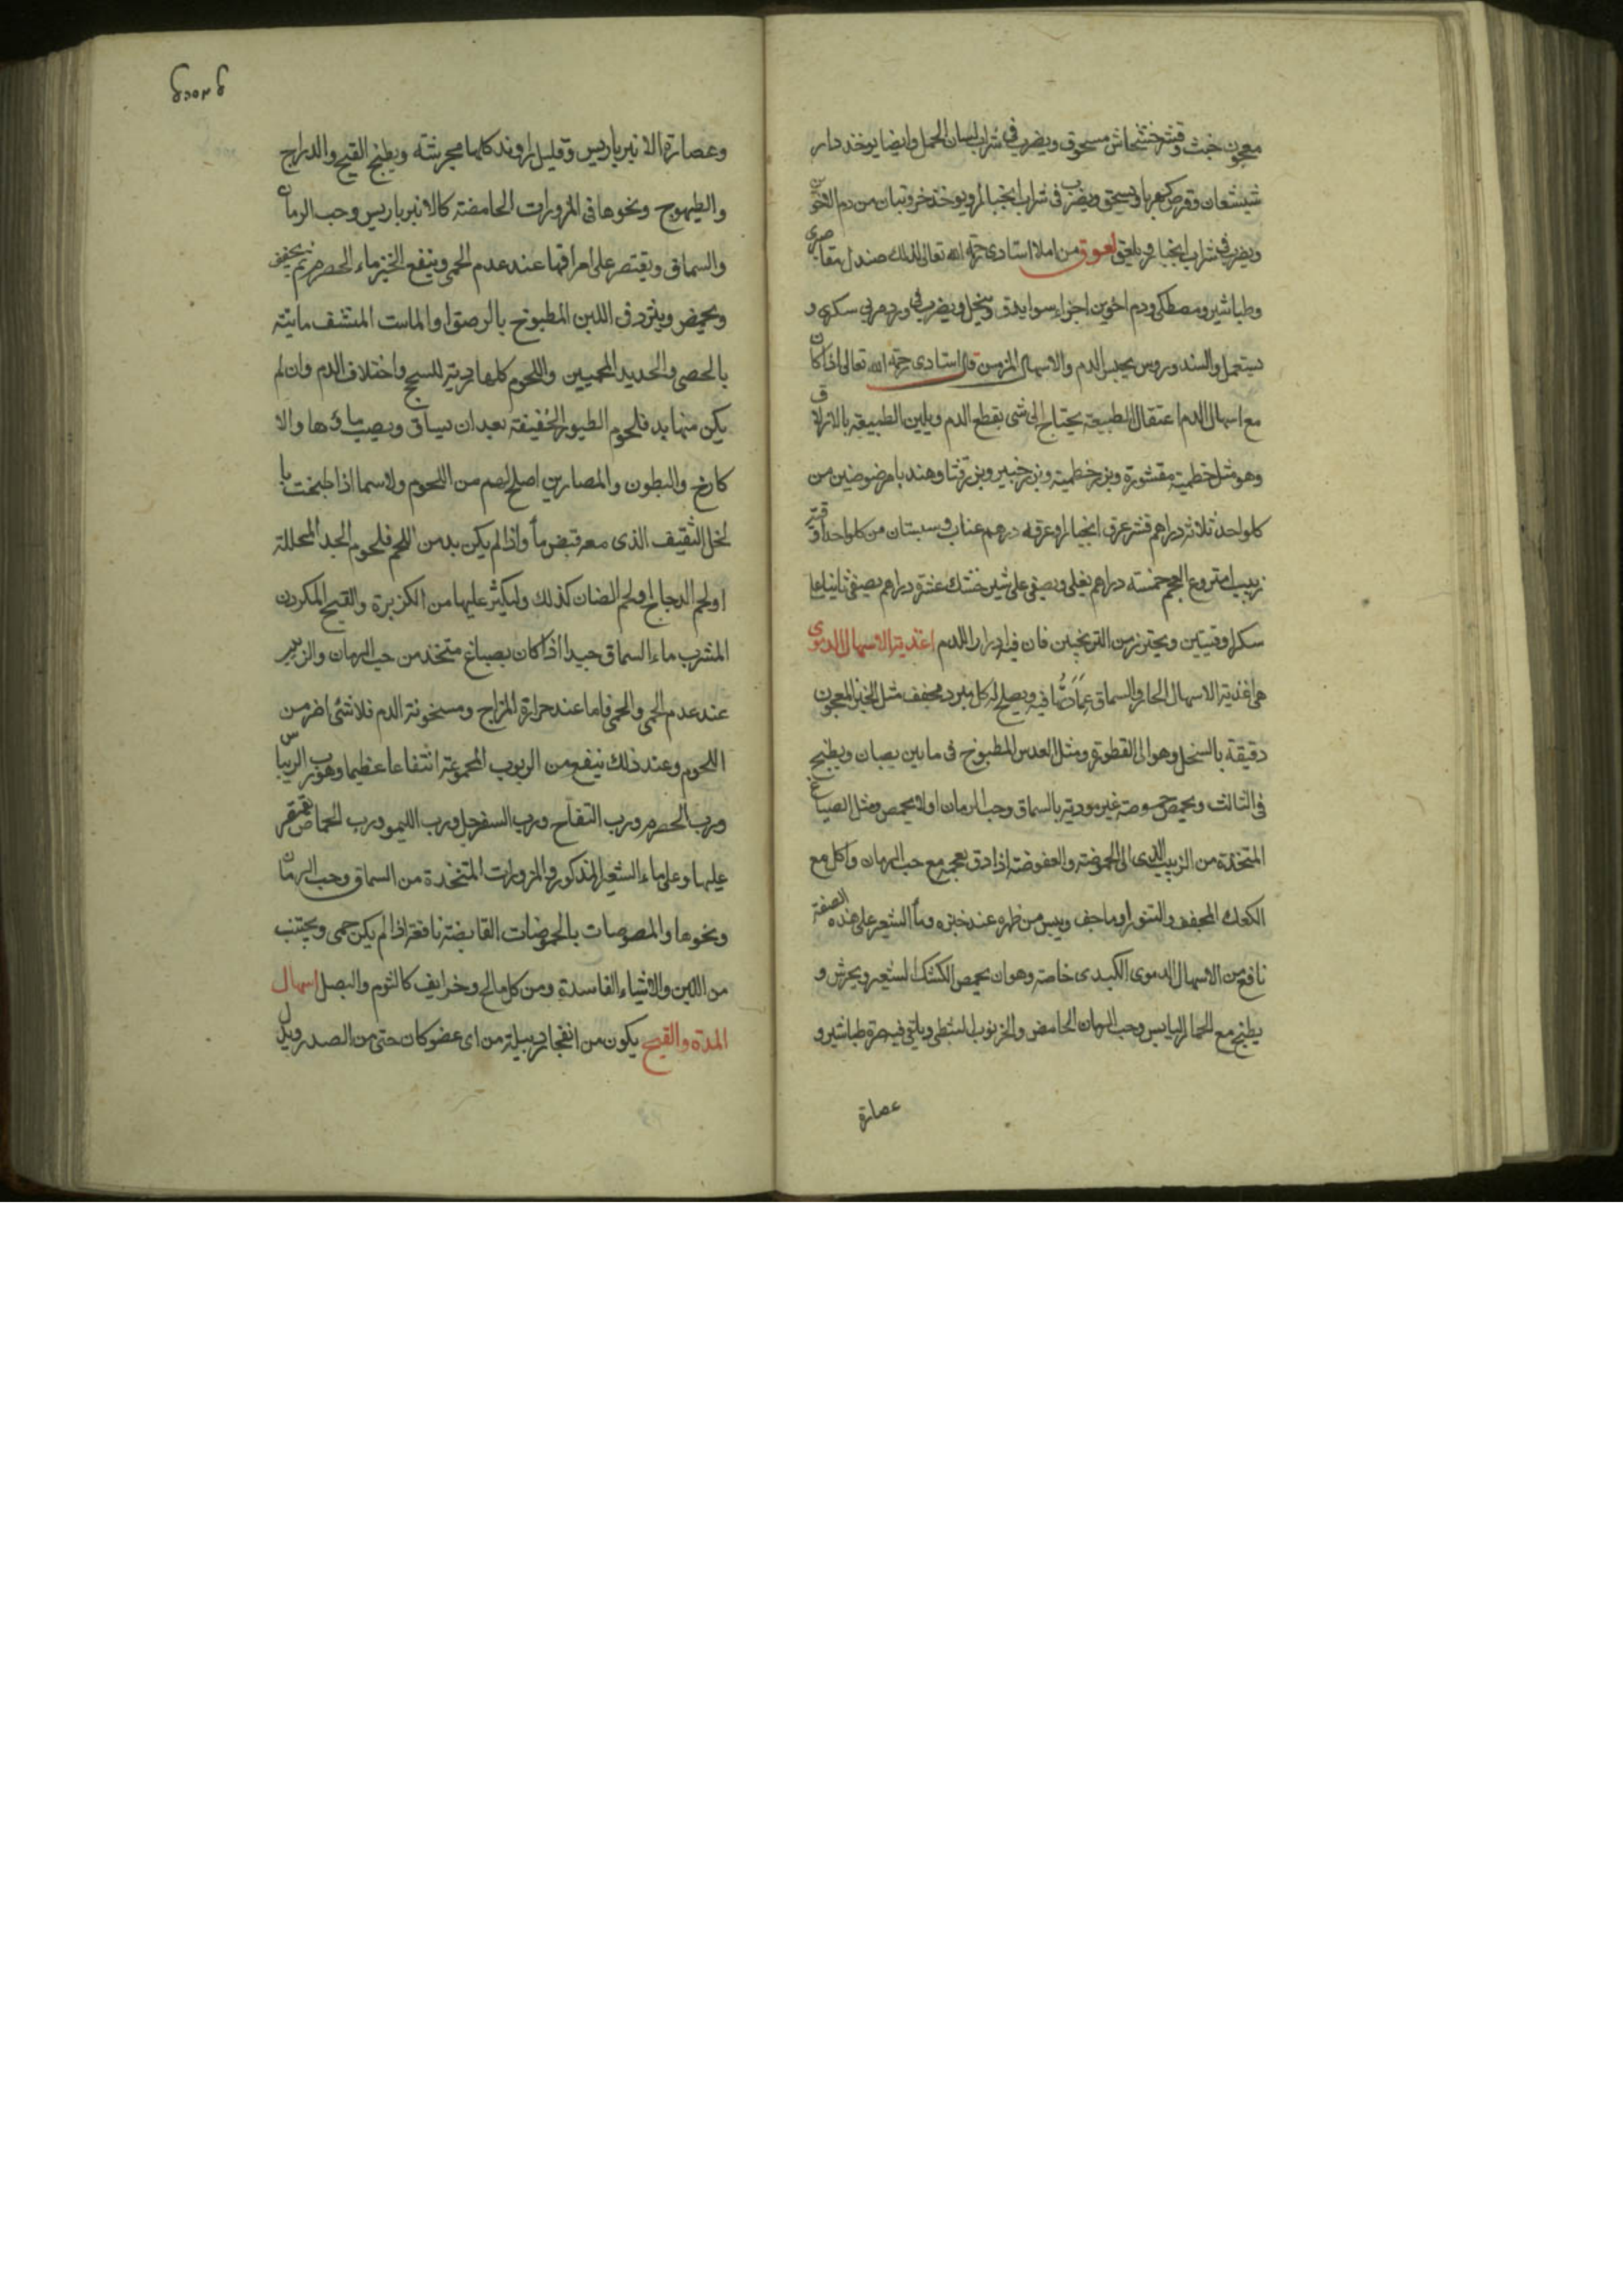 معجون خبث وقشر خشخاش مسحوق ويضرب فى شراب لسان الحمل وايضا يوخذ دار
شيشعان وقرص كهربا ويسحق ويضرب فى شراب انجبار ويوخذ خروبتان من دم الاخوين
ويضرب فى شراب انجبار ويلعق لعوق من املا استادى رحمة الله تعالى لذلك صندل مقاصرى
وطباشير ومصطكى ودم اخوين اجزاء سوا يدق وينخل ويضرب فى ورد مربى سكرى و
يستعمل والسندروس يحبس الدم والاسهال المزمن قال استادى رحمة الله تعالى اذا كان
مع اسهال الدم اعتقال الطبيعة يحتاج الى شى يقطع الدم ويلين الطبيعة بالازلاق
وهو مثل خطمية مقشورة وبزر خطمية وبزر خبيز وبزر قثا وهندبا مرضوضين من
كل واحد ثلاثة دراهم قشر عرق انجبار وعرقه درهم عناب وسبستان من كل واحد اوقية
زبيب منزوع العجم خمسة دراهم يغلى ويصفى على شيرخشك عشرة دراهم يصفى ثانيا على
سكر اوقيتين ويحترز من الترنجبين فان فيه ادرارا للدم اغذية الاسهال الدموى
هى اغذية الاسهال الحار والسماق عمادها فيه ويصلح له كل مبرد مجفف مثل الخبز المعجون
دقيقه بالسنحل وهو الى القطوتة ومثل العدس المطبوخ فى مايين يصبان ويطبخ
فى الثالث ويحمض حموضة غير موذية بالسماق وحب الرمان اولا يحمص ومثل الصباغ
المتخذة من الزبيب الذى الى الحموضة والعفوضة اذا دق بعجمه مع حب الرمان واكل مع
الكعك المجفف فى التنور او ما جف ويبس من ظهره عند خبزه وماء الشعير على هذه الصفة
نافع من الاسهال الدموى الكبدى خاصة وهو ان يحمص الكشك الشعير ويجرش و
يطبخ مع الجمار اليابس وحب الرمان الحامض والخرنوب النبطى ويلقى فيه صرة طباشير و
عصارة
وعصارة الانبرباريس وقليل راوند كلها مجرشة ويطبخ القبج والدراج
والطيهوج ونحوها فى المزورات الحامضة كالانبرباريس وحب الرمان
والسماق ويقتصر على امراقها عند عدم الحمى وينقع الخبز ماء الحصرم ثم يجفف
ويحمض ويثرد فى اللبن المطبوخ بالرصق او الماست المنشف مائيته
بالحصى والحديد المحميين واللحوم كلها ردية للسحج واختلاف الدم وان لم
يكن منها بد فلحوم الطيور الخفيفة بعد ان تساق ويصب ماؤها والا
كارع والبطون والمصارين اصلح لهم من اللحوم ولاسما اذا طبخت با
لخل الثقيف الذى معه قبض ما واذا لم يكن بد من اللحم فلحوم الجدا المحللة
او لحم الدجاج او لحم الضان كذلك وليكثر عليها من الكزبرة والقبج المكردن
المشرب ماء السماق جيدا اذا كان بصباغ متخذ من حب الرمان والزبيب
عند عدم الحمى والحمى فاما عند حرارة المزاج وسخونة الدم فلا شئ اضر من
اللحوم وعند ذلك ينفع من الربوب المجموعة انتفاعا عظيما وهو رب الريباس
ورب الحصرم ورب التفاح ورب السفرجل ورب الليمو ورب الحماض يقتصر
عليها وعلى ماء الشعير المذكور والمزورات المتخذة من السماق وحب الرمان
ونحوها والمصوصات بالحموضات القابضة نافعة اذا لم يكن حمى ويجتنب
من اللبن والاشياء الفاسدة ومن كل مالح وحريف كالثوم والبصل اسهال
المدة والقيح يكون من انفجار دبيلة من اى عضو كان حتى من الصدر ويدل